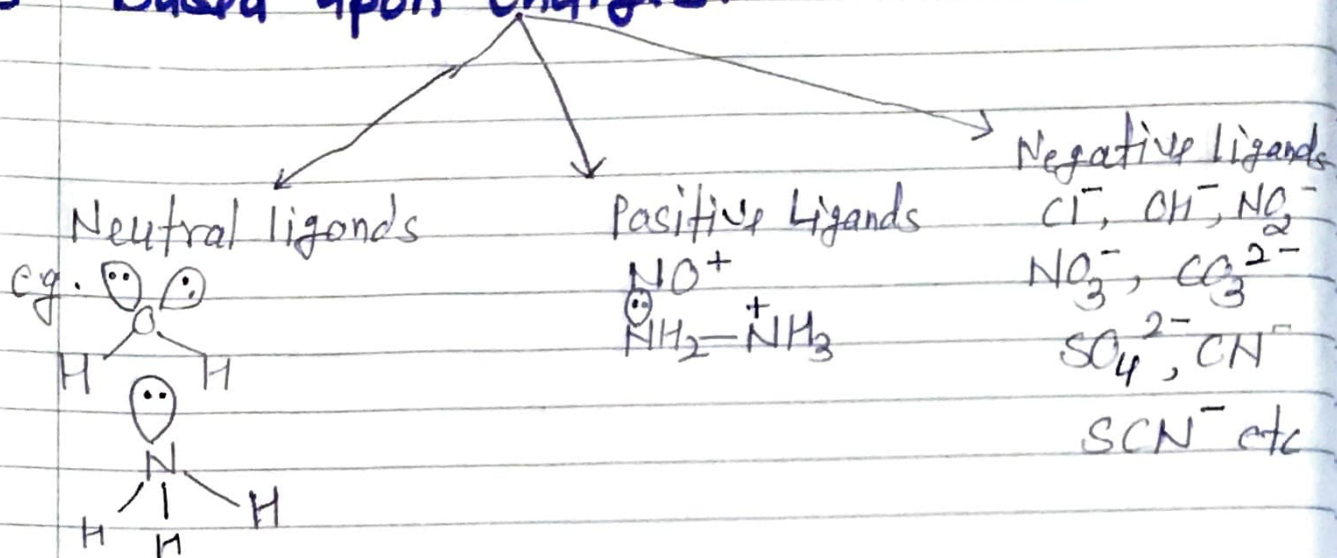 Based upon charge
Neutral ligands
eg.
O
H H
N
H H H
Positive Ligands
NO⁺
NH₂–N⁺H₃
Negative ligands
Cl⁻, OH⁻, NO₂⁻
NO₃⁻, CO₃²⁻
SO₄²⁻, CN⁻
SCN⁻ etc